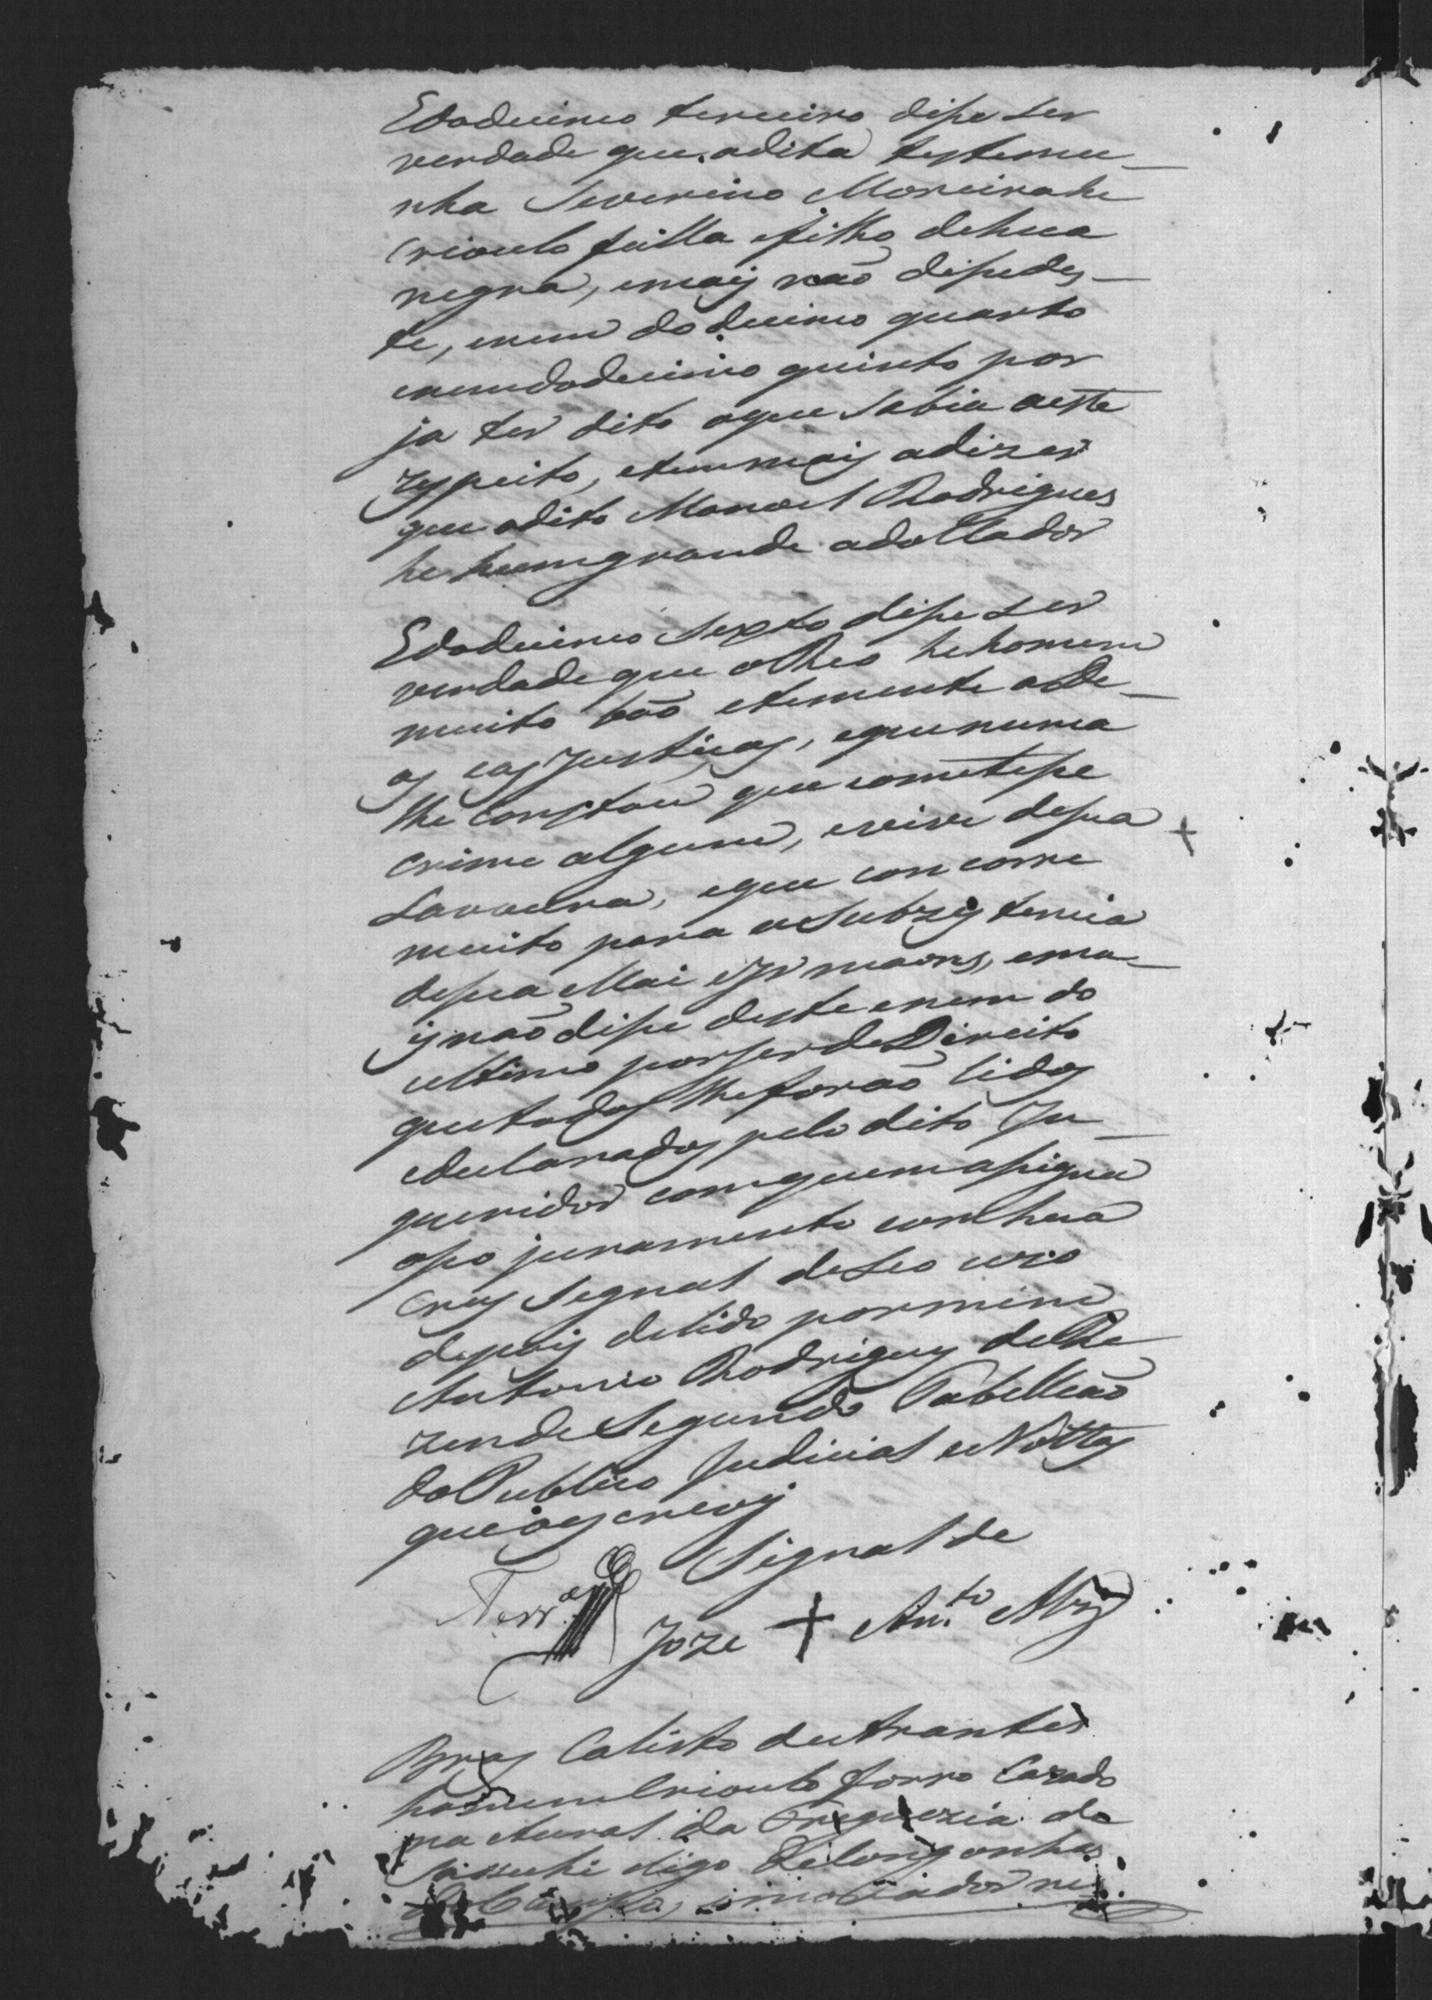 Edodecimo terceiro dise ser
verdade que adita testemu_
nha Severino Moreira he
crioulo fulla efilho dehua
negra, emais não disedes_
te, enem do decimo quarto
enemdodecimo quinto por
ja ter dito oque sabia aeste
respeito, etemmais adizer
que odito Manoel Rodrigues
he humgrande adollador
Edodecimo sexto dise ser
verdade que oReo hehomem
muito bão etemente aDe_
os easJustiças, equenunca
lhe constou que cometese
crime algum, evive desua
Lavoura, eque concorre
muito para asubzistencia
desua Mai eIrmaons, ema_
isnão dise deste enem do
ultimo porserdeDireito
quetodos lheforão lidos
edeclarados pelo dito In_
queridor comquemasignou
oseo juramento comhua
Crus signal deseo uzo
depois delido pormim
Antonio Rodrigues deRe
zende Segundo Tabelleão
doPublico Judicial eNottas
queoescrevy
Signal de
Ferr.ª
Joze + An.to Alvz
Bras Calisto deAtrantes
homem crioulo forro Cazado
natural da Freguezia de
digo deCongonhas
doCampo, emorador ne